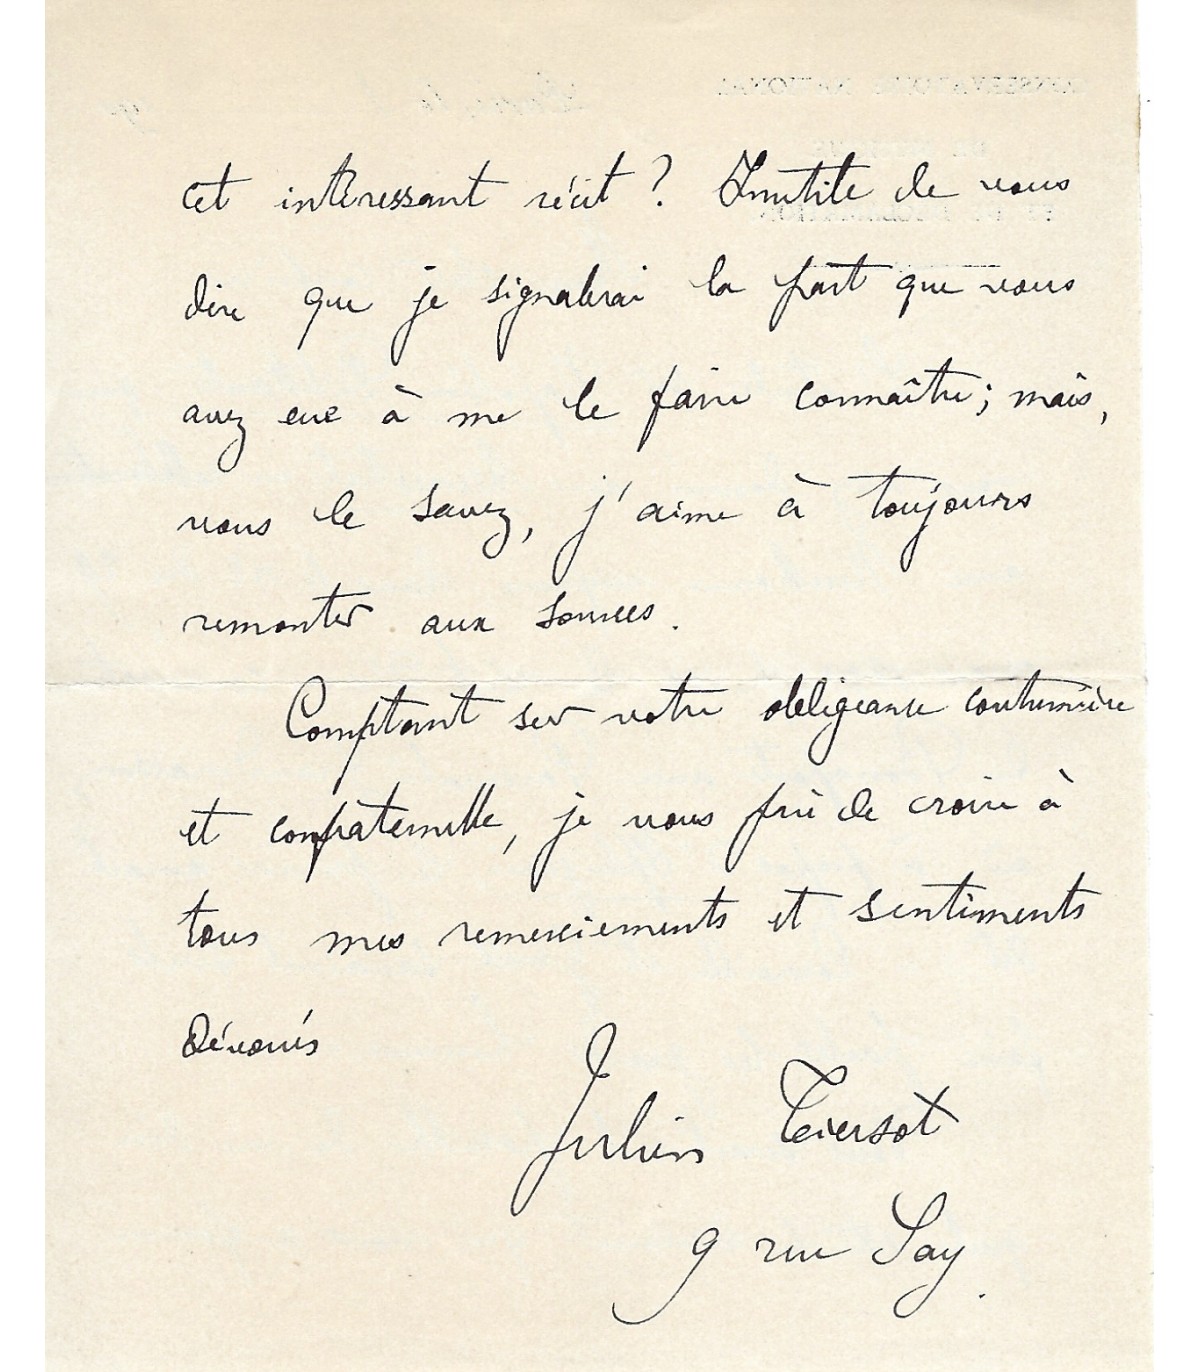 cet intéressant récit ? Inutile de vous
dire que je signalerai la part que vous
avez eue à me le faire connaître ; mais,
vous le savez, j'aime à toujours
remonter aux sources.
Comptant sur votre obligeance coutumière
et confraternelle, je vous prie de croire à
tous mes remerciements et sentiments
dévoués
Julien Tiersot
9 rue Say.